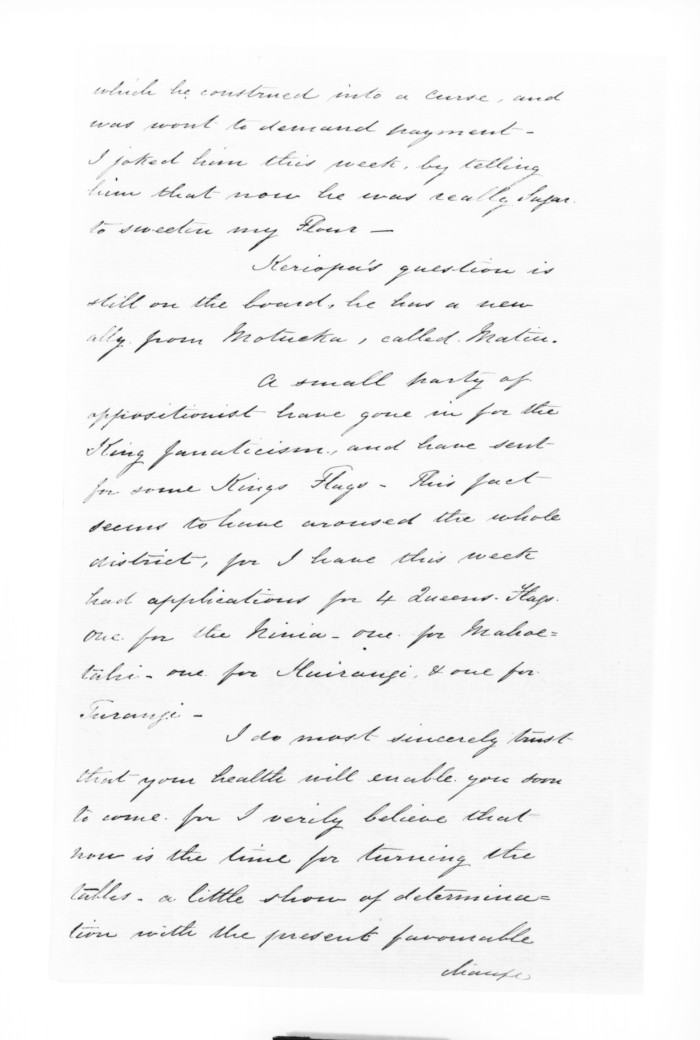 which he construed into a curse, and
was wont to demand payment -
I joked him this week, by telling
him that now he was really Sugar
to sweeten my Flour —
Keriopa's question is
still on the board, he has a new
ally from Motueka, called Matiu.
A small party of
oppositionist have gone in for the
King fanaticism, and have sent
for some Kings Flags - This fact
seems to have aroused the whole
district, for I have this week
had applications for 4 Queens Flags.
One for the Ninia - one for Mahoe=
tahi - one for Huirangi, & one for
Turangi -
I do most sincerely trust
that your health will enable you soon
to come for I verily believe that
now is the time for turning the
tables - a little show of determina=
tion with the present favourable